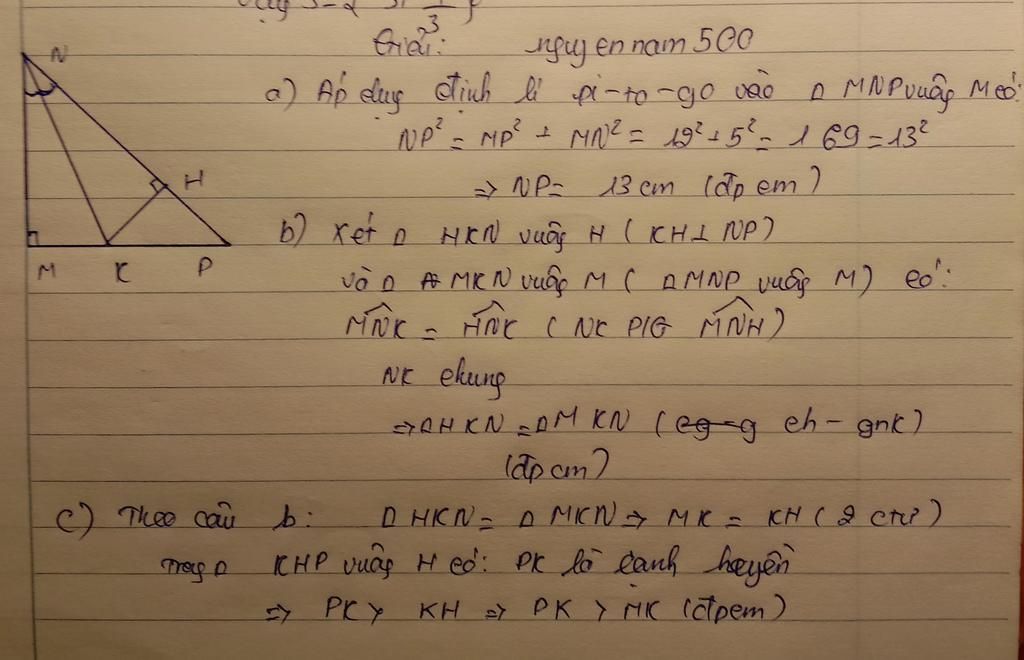 Giải: nguyennam500
N
a) Áp dụng định lí pi-ta-go vào Δ MNP vuông M có:
NP² = MP² + MN² = 12² + 5² = 169 = 13²
H
⇒ NP = 13 cm (đpcm)
b) Xét Δ HKN vuông H (KH ⊥ NP)
M K P
và Δ MKN vuông M (Δ MNP vuông M) có:
MNK = HNK (NK P/G MNH)
NK chung
⇒ Δ HKN = Δ MKN (ch - gnk)
(đpcm)
c) Theo câu b: Δ HKN = Δ MKN ⇒ MK = KH (2 ctư)
Trong Δ KHP vuông H có: PK là cạnh huyền
⇒ PK > KH ⇒ PK > MK (đpcm)